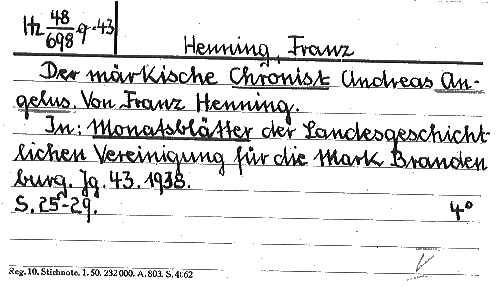 Hz 48/698 q-43
Henning, Franz
Der märkische Chronist Andreas An-
gelus. Von Franz Henning.
In: Monatsblätter der Landesgeschicht-
lichen Vereinigung für die Mark Branden
burg. Jg. 43. 1938.
S. 25-29. 4°
Reg. 10. Stichnote. 1. 50. 232000. A. 803. S. 4062